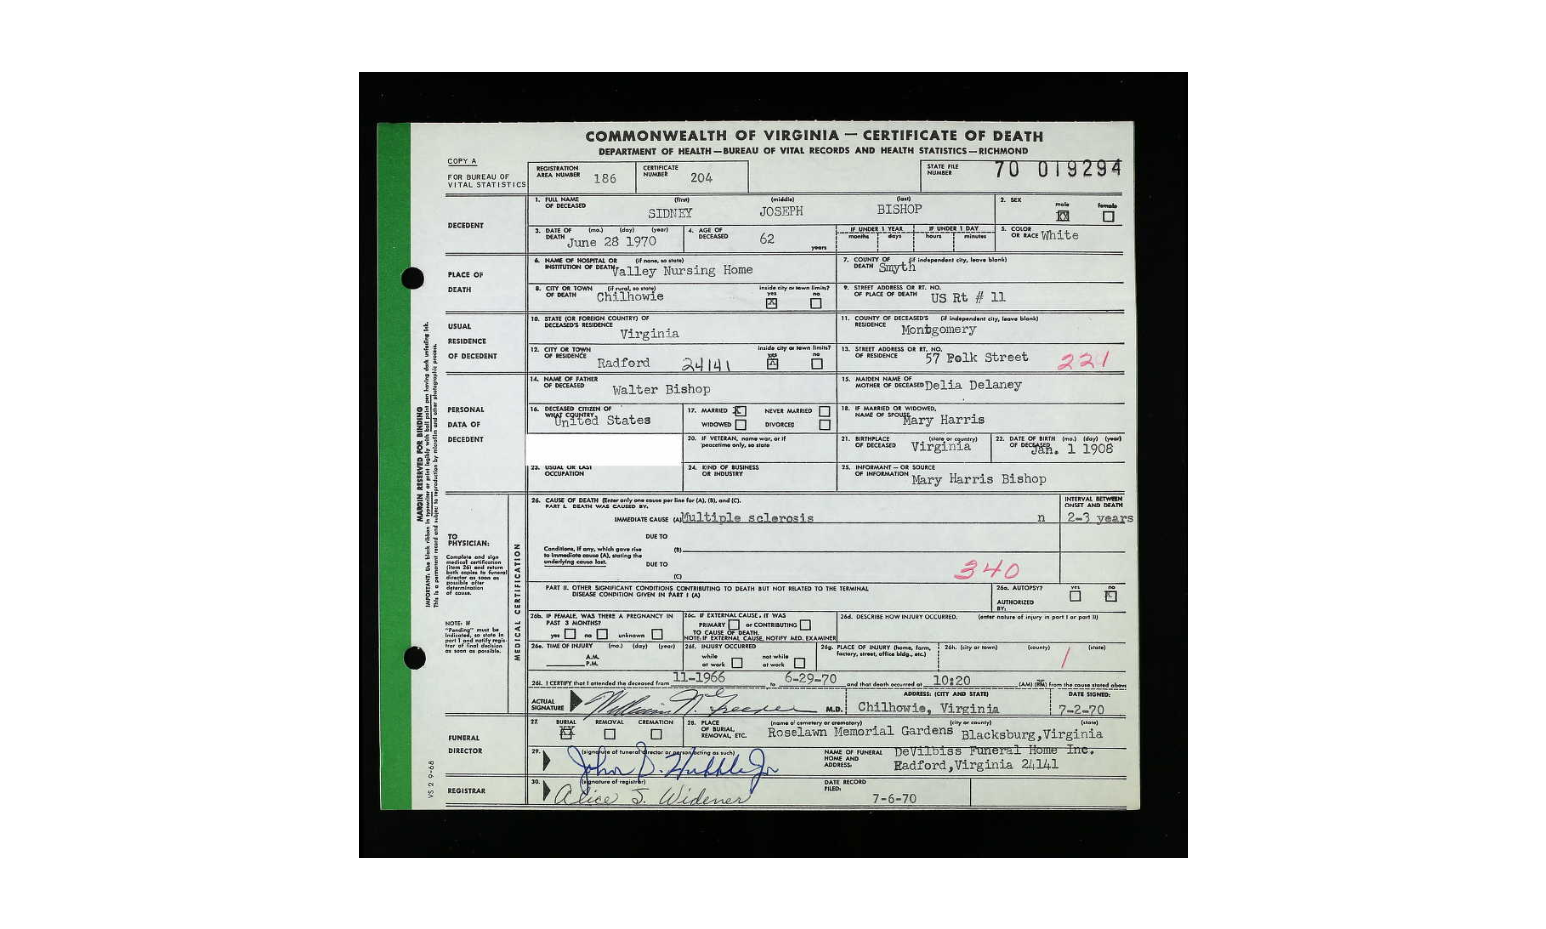 COMMONWEALTH OF VIRGINIA — CERTIFICATE OF DEATH
DEPARTMENT OF HEALTH—BUREAU OF VITAL RECORDS AND HEALTH STATISTICS—RICHMOND
COPY A
FOR BUREAU OF VITAL STATISTICS
REGISTRATION AREA NUMBER 186
CERTIFICATE NUMBER 204
STATE FILE NUMBER 70 019294
DECEDENT
1. FULL NAME OF DECEASED (first) SIDNEY (middle) JOSEPH (last) BISHOP
2. SEX male X female
3. DATE OF DEATH (mo.) (day) (year) June 28 1970
4. AGE OF DECEASED 62 years
IF UNDER 1 YEAR months days
IF UNDER 1 DAY hours minutes
5. COLOR OR RACE White
PLACE OF DEATH
6. NAME OF HOSPITAL OR INSTITUTION OF DEATH (if none, so state) Valley Nursing Home
7. COUNTY OF DEATH (if independent city, leave blank) Smyth
8. CITY OR TOWN OF DEATH (if rural, so state) Chilhowie
inside city or town limits? yes X no
9. STREET ADDRESS OR RT. NO. OF PLACE OF DEATH US Rt # 11
USUAL RESIDENCE OF DECEDENT
10. STATE (OR FOREIGN COUNTRY) OF DECEASED'S RESIDENCE Virginia
11. COUNTY OF DECEASED'S RESIDENCE (if independent city, leave blank) Montgomery
12. CITY OR TOWN OF RESIDENCE Radford 24141
inside city or town limits? yes X no
13. STREET ADDRESS OR RT. NO. OF RESIDENCE 57 Polk Street 221
PERSONAL DATA OF DECEDENT
14. NAME OF FATHER OF DECEASED Walter Bishop
15. MAIDEN NAME OF MOTHER OF DECEASED Delia Delaney
16. DECEASED CITIZEN OF WHAT COUNTRY United States
17. MARRIED X NEVER MARRIED
WIDOWED DIVORCED
18. IF MARRIED OR WIDOWED, NAME OF SPOUSE Mary Harris
20. IF VETERAN, name war, or if peacetime only, so state
21. BIRTHPLACE OF DECEASED (state or country) Virginia
22. DATE OF BIRTH OF DECEASED (mo.) (day) (year) Jan. 1 1908
23. USUAL OR LAST OCCUPATION
24. KIND OF BUSINESS OR INDUSTRY
25. INFORMANT — OR SOURCE OF INFORMATION Mary Harris Bishop
MEDICAL CERTIFICATION
TO PHYSICIAN:
Complete and sign medical certification (item 26) and return both copies to funeral director as soon as possible after determination of cause.
NOTE: IF "Pending" must be indicated, so state in part 1 and notify registrar of final decision as soon as possible.
26. CAUSE OF DEATH (Enter only one cause per line for (A), (B), and (C).
PART I. DEATH WAS CAUSED BY:
INTERVAL BETWEEN ONSET AND DEATH
IMMEDIATE CAUSE (A) Multiple sclerosis n 2-3 years
DUE TO
Conditions, if any, which gave rise to immediate cause (A), stating the underlying cause last.
(B)
DUE TO
(C)
340
PART II. OTHER SIGNIFICANT CONDITIONS CONTRIBUTING TO DEATH BUT NOT RELATED TO THE TERMINAL DISEASE CONDITION GIVEN IN PART I (A)
26a. AUTOPSY? yes no X
AUTHORIZED BY:
26b. IF FEMALE, WAS THERE A PREGNANCY IN PAST 3 MONTHS?
yes no unknown
26c. IF EXTERNAL CAUSE, IT WAS
PRIMARY or CONTRIBUTING
TO CAUSE OF DEATH.
NOTE: IF EXTERNAL CAUSE, NOTIFY MED. EXAMINER
26d. DESCRIBE HOW INJURY OCCURRED. (enter nature of injury in part I or part II)
26e. TIME OF INJURY (mo.) (day) (year)
A.M.
P.M.
26f. INJURY OCCURRED
while at work not while at work
26g. PLACE OF INJURY (home, farm, factory, street, office bldg., etc.)
26h. (city or town) (county) (state)
1
26i. I CERTIFY that I attended the deceased from 11-1966 to 6-29-70 and that death occurred at 10:20 (AM) (PM) from the cause stated above
ACTUAL SIGNATURE M.D.
ADDRESS: (CITY AND STATE) Chilhowie, Virginia
DATE SIGNED: 7-2-70
FUNERAL DIRECTOR
27. BURIAL XX REMOVAL CREMATION
28. PLACE OF BURIAL, REMOVAL, ETC. (name of cemetery or crematory) Roselawn Memorial Gardens (city or county) Blacksburg, (state) Virginia
29. (signature of funeral director or person acting as such) John D. Hubble Jr
NAME OF FUNERAL HOME AND ADDRESS: DeVilbiss Funeral Home Inc.
Radford, Virginia 24141
REGISTRAR
30. (signature of registrar) Alice J. Widener
DATE RECORD FILED: 7-6-70
VS 2 9-68
MARGIN RESERVED FOR BINDING